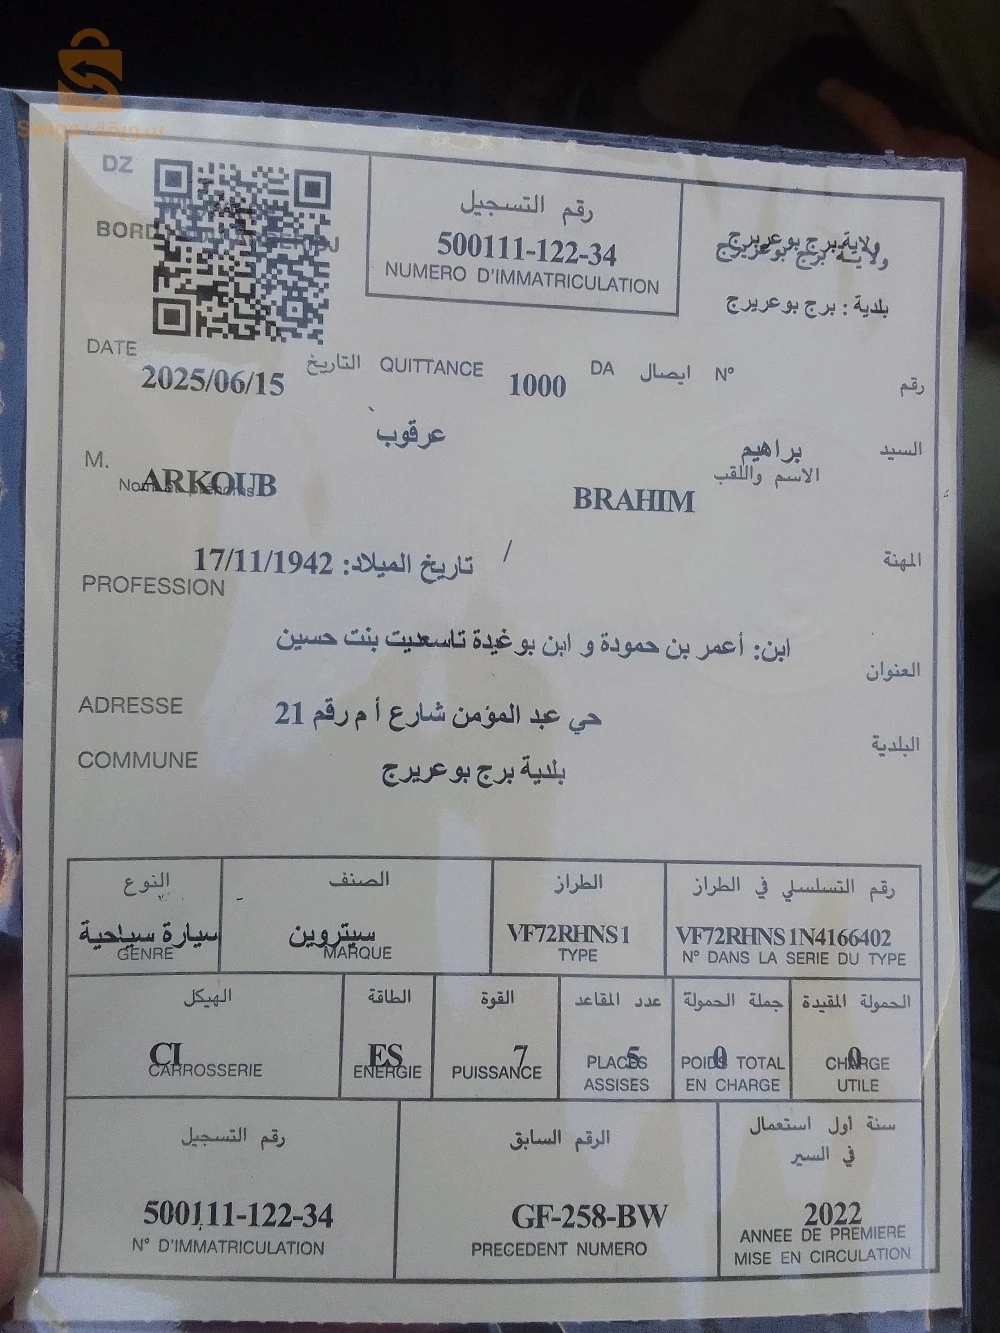 سوريقة Swiga
DZ
رقم التسجيل
500111-122-34
NUMERO D'IMMATRICULATION
ولاية برج بوعريريج
ولاية برج بوعريريج
بلدية : برج بوعريريج
DATE 2025/06/15 التاريخ QUITTANCE 1000 DA ايصال N° رقم
السيد براهيم عرقوب
M. ARKOUB BRAHIM
Nom et prénoms الاسم واللقب
المهنة / تاريخ الميلاد: 17/11/1942
PROFESSION
ابن: أعمر بن حمودة و ابن بوغيدة تاسعديت بنت حسين
العنوان
ADRESSE حي عبد المؤمن شارع أ م رقم 21
البلدية
COMMUNE بلدية برج بوعريريج
النوع الصنف الطراز رقم التسلسلي في الطراز
سيارة سياحية سيتروين VF72RHNS1 VF72RHNS1N4166402
GENRE MARQUE TYPE N° DANS LA SERIE DU TYPE
الهيكل الطاقة القوة عدد المقاعد جملة الحمولة الحمولة المقيدة
CI ES 7 5 0 0
CARROSSERIE ENERGIE PUISSANCE PLACES ASSISES POIDS TOTAL EN CHARGE CHARGE UTILE
رقم التسجيل الرقم السابق سنة أول استعمال في السير
500111-122-34 GF-258-BW 2022
N° D'IMMATRICULATION PRECEDENT NUMERO ANNEE DE PREMIERE MISE EN CIRCULATION